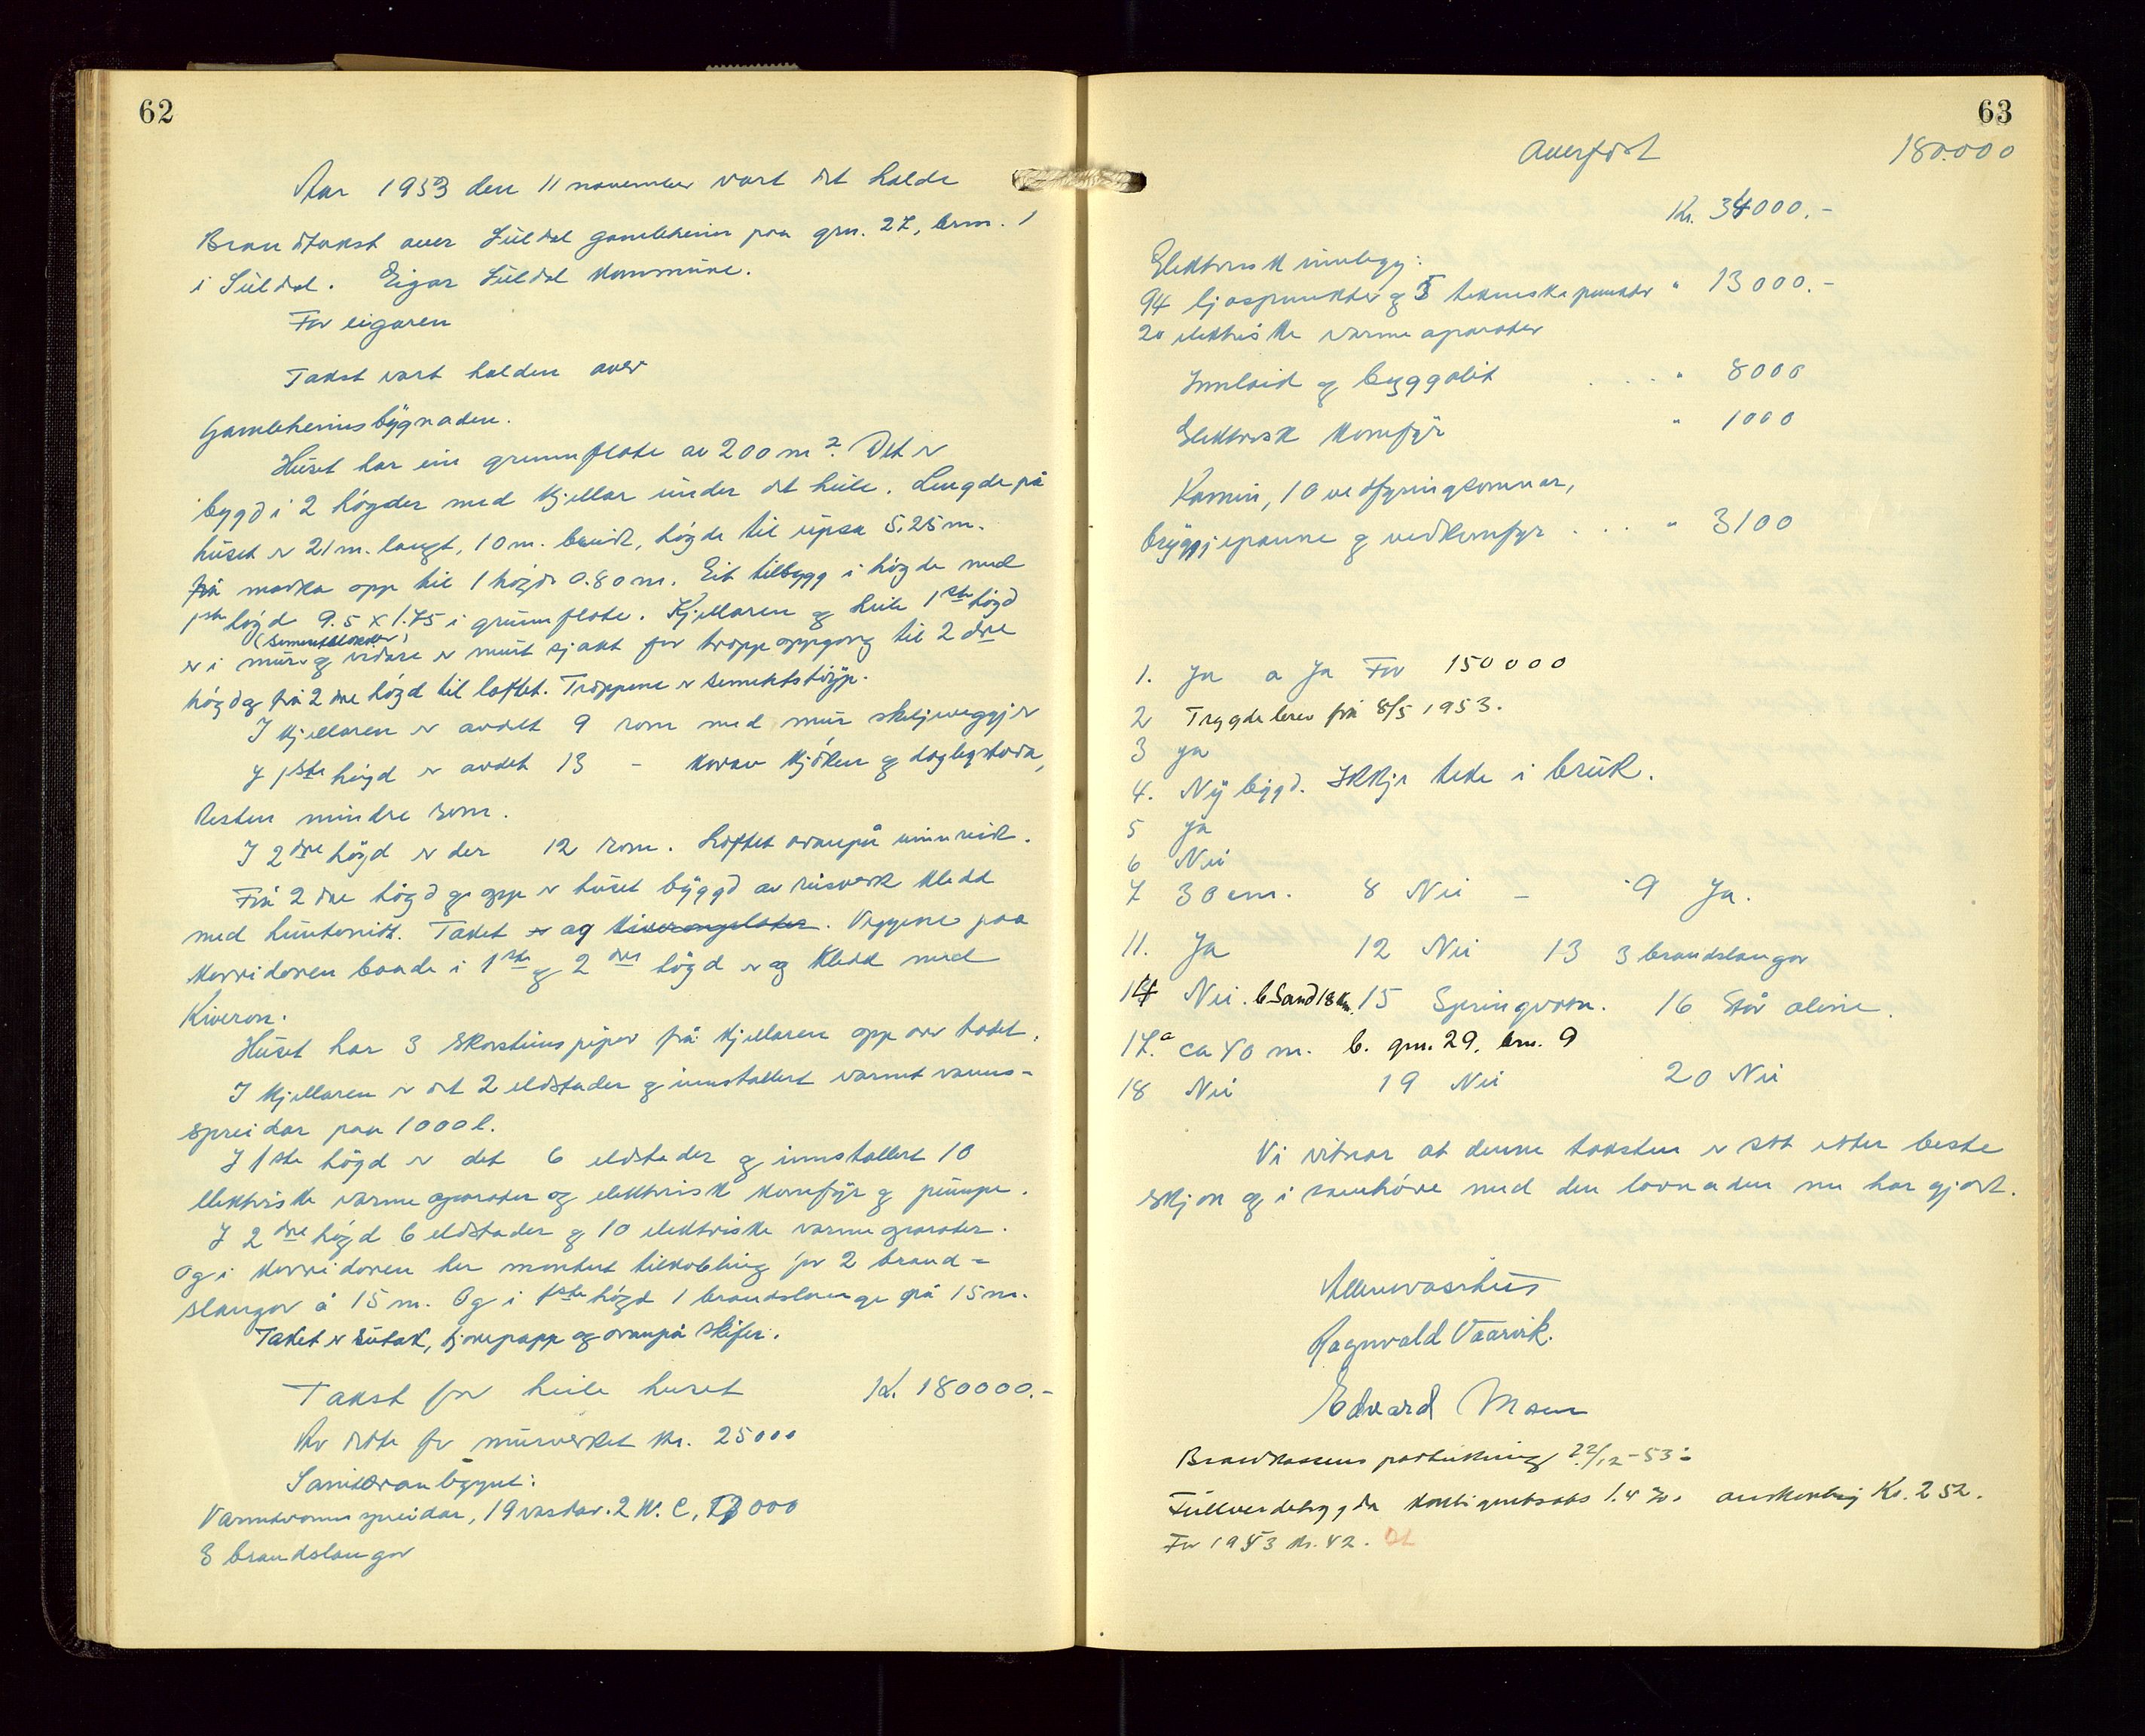 62
Aar 1953 den 11 november vart det halde
Brandtakst over Suldal gamleheim paa grn. 27, brm. 1
i Suldal. Eigar Suldal Kommune.
For eigaren
Takst vart halden over
Gamleheimsbygnaden.
Huset har ein grunnflate av 200 m². Det er
bygd i 2 høgder med kjellar under det heile. Lengde på
huset er 21 m. langt, 10 m. breidt, høgde til upsa 5,25 m.
frå marka opp til 1 høgde 0.80 m. Eit tilbygg i høgde med
1ste høgd 9.5 x 1.75 i grunnflate. Kjellaren og heile 1ste høgd
(sementblokker)
er i mur og vidare er murt sjakt for trappeoppgong til 2 dre
høgd og frå 2 dre høgd til loftet. Trappene er sementstøyp.
I kjellaren er avdelt 9 rom med mur skiljeveggjer
I 1ste høgd er avdelt 13 - korav kjøken og daglegstova,
Resten mindre rom.
I 2 dre høgd er der 12 rom. Loftet ovanpå uinnreidt.
Frå 2 dre høgd og opp er huset byggd av reisverk kledd
med huntonitt. Taket er og kiveronplater. Veggene paa
korridoren baade i 1ste og 2 dre høgd er og kledd med
Kiveron.
Huset har 3 skorsteinspiper frå kjellaren opp over taket.
I kjellaren er det 2 eldstader og innstallert varmt vanns-
spreidar paa 1000 l.
I 1ste høgd er det 6 eldstader og innstallert 10
elektriske varmeaparater og elektrisk komfyr og pumpe.
I 2 dre høgd 6 eldstader og 10 elektriske varmeaparater.
Og i korridoren her montert tilkobling for 2 brand-
slangor à 15 m. Og i 1ste høgd 1 brandslange på 15 m.
Taket er sutak, tjørepapp og ovanpå skifer.
Takst for heile huset Kr. 180000.-
Av dette for murverket kr. 25000
Sanitæranlegget:
Varmtvannspreidar, 19 vaskar. 2 W.C, 13000
3 brandslangor
63
Overført 180.000
Kr. 34000.-
Elektrisk innlegg:
94 ljospunkter og 5 tekniske punkter " 13000.-
20 elektriske varmeaparater
Innlaid og byggolit . . . " 8000
Elektrisk komfyr " 1000
Kamin, 10 vedfyringsomnar,
bryggjepanne og vedkomfyr . . . " 3100
1. Ja a Ja For 150000
2 Trygdebrev frå 8/5 1953.
3 ja
4. Ny bygd. Ikkje teke i bruk.
5 ja
6 Nei
7 30 cm. 8 Nei - 9 Ja.
11. Ja 12 Nei 13 3 brandslangor
14 Nei. b Sand 18 km. 15 Springvatn. 16 Står aleine.
17.a ca 40 m. b. grn. 29, brn. 9
18 Nei 19 Nei 20 Nei
Vi vitnar at denne taksten er sett etter beste
skjøn og i samhøve med den lovnaden me har gjort.
Ragnvald Vaarvik.
Edvard Moen
Brandkassens paategning 22/12-53:
Fullverdetrygda kontigentsats 1.4 ‰ Kr. 252.
For 1953 kr. 42.